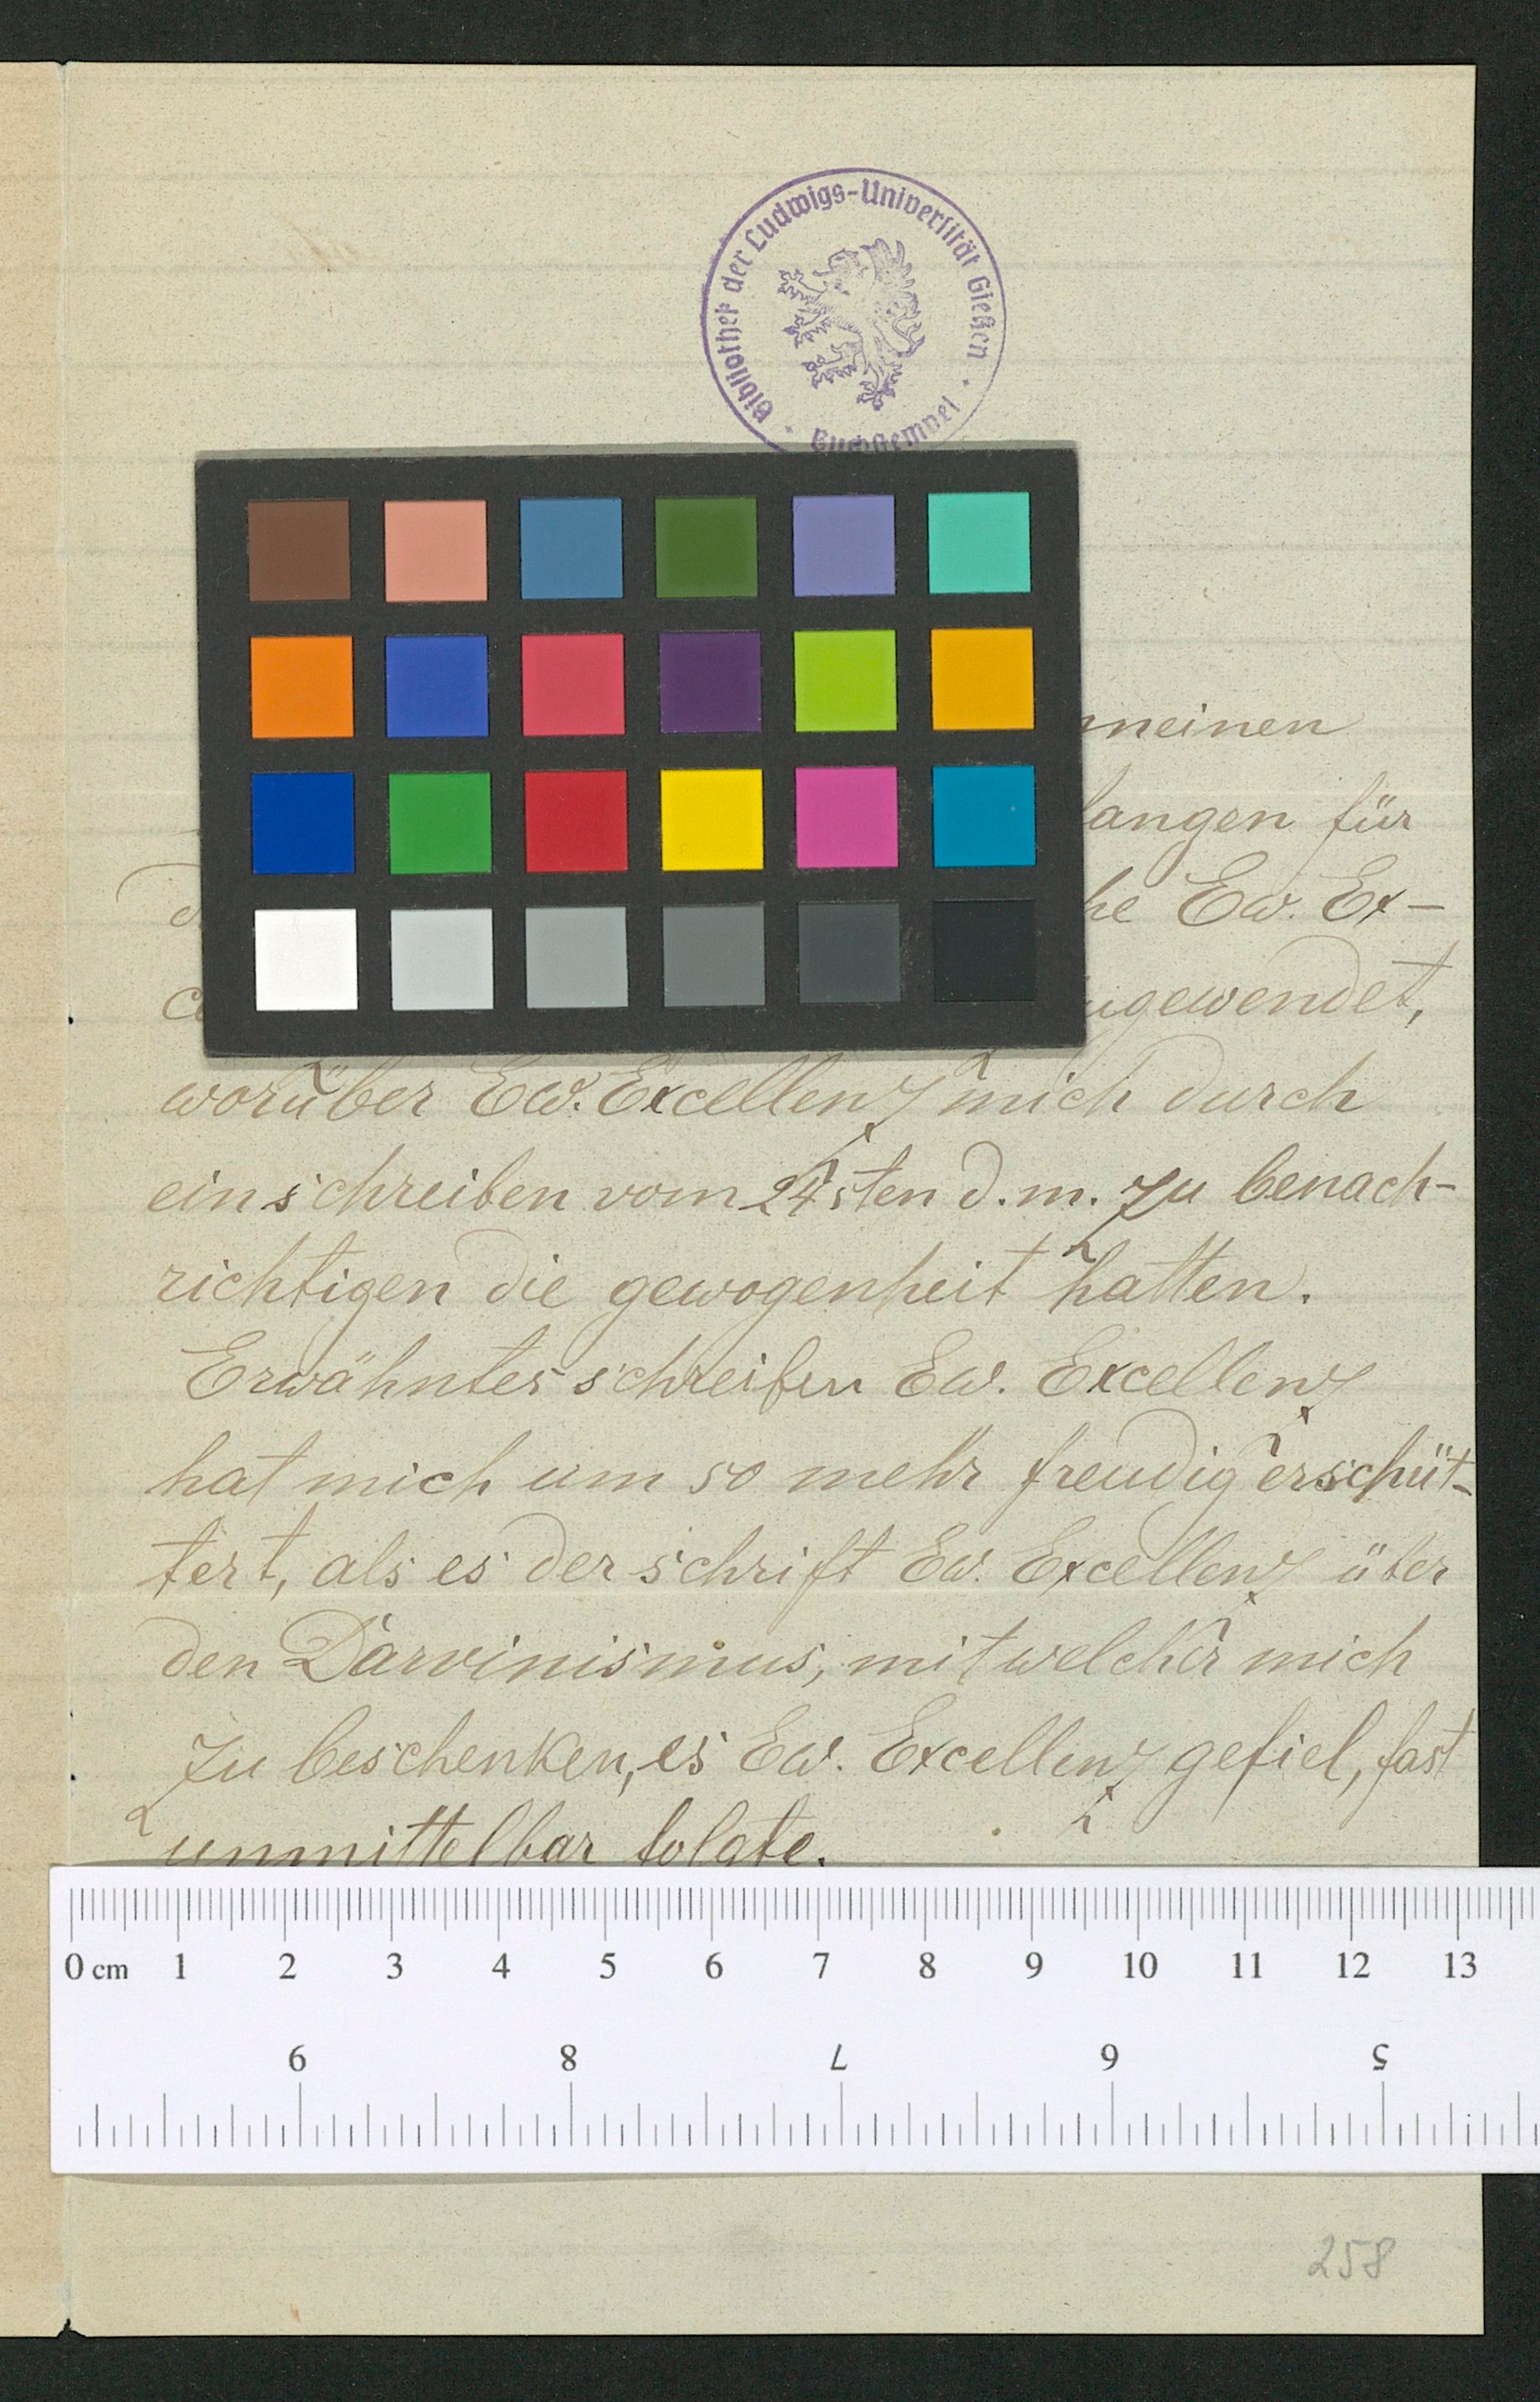 Bibliothek der Ludwigs-Universität Gießen
Buchstempel
meinen
langen für
he Ew. Ex-
ugewendet,
worüber Ew. Excellenz mich durch
ein schreiben vom 24sten d. m. zu benach-
richtigen die gewogenheit hatten.
Erwähntes schreiben Ew. Excellenz
hat mich um so mehr freudig erschüt-
tert, als es der schrift Ew. Excellenz über
den Darvinismus, mit welcher mich
zu beschenken, es Ew. Excellenz gefiel, fast
unmittelbar folgte.
0 cm 1 2 3 4 5 6 7 8 9 10 11 12 13
9 8 7 6 5
258